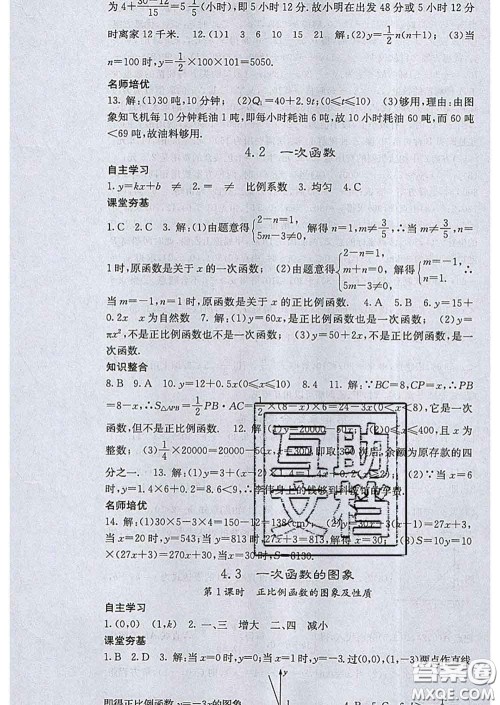 为4+30-12/15=5 1/5(小时),即5小时12分. 故小明在出发5小时12分
时离家12千米. 12.(1)1 3 6 10 15 21 解:(2)y=1/2n(n+1); (3)当
n=100时,y=1/2×100×101=5050.
名师培优
13. 解:(1)30吨,10分钟; (2)Q₁=40+2.9t;(0≤t≤10) (3)够用,理由:由图
象知飞机每10分钟耗油1吨,即每小时耗油6吨,故10小时耗油60吨,而60
<69吨,故油料够用.
4.2 一次函数
自主学习
1. y=kx+b ≠ 2. = ≠ 比例系数 3. 均匀 4. C
课堂夯基
1. C 2. C 3. 解:(1)由题意得{2-n=1, 5m-3≠0, 解得n=1,m≠3/5,∴当m≠3/5,n=
1时,原函数是关于x的一次函数; (2)由题意得{2-n=1, m+n=0, 5m-3≠0, 解得{m=-1, n=1. ∴
当m=-1,n=1时,原函数是关于x的正比例函数. 4. A 5. B 6. y=15+
0.2x x为自然数 7. 解:(1)y=60x,是正比例函数也是一次函数. (2)y=
πx²,不是正比例函数也不是一次函数; (3)y=50+2x,不是正比例函数,是一
次函数.
知识整合
8. B 9. A 10. y=12+0.5x(0≤x≤10) 8. 4 11. 解:∵BC=8,CP=x,∴PB
=8-x,∴S△APB=1/2PB·AC=1/2×(8-x)×6=24-3x(0<x<8),它是一次
函数,但不是正比例函数. 12.
0≤x≤400,且x为
整数; (3)1/4×20000=-50x+20000,
四
分之一. 13. 解:
∵当x=6
时,y=1.4×6+0.2=8.6<9,∴
名师培优
14. 解:(1)30×5-3×4=150-12=138(cm)
(x-1)=27x+3,
当x=20时,y=543;当y=813时,27x+3=813,解得x=30; (3)S=10y=10
×(27x+3)=270x+30,当x=30时,S=8130.
4.3 一次函数的图象
第1课时 正比例函数的图象及性质
自主学习
1. (0,0) (1,k) 2. 一、三 增大 二、四 减小
课堂夯基
1. B 2. D 3. 解:当x=0时,y=0;当x=1时,y=-3. 过(0,0),(1,-3)两点作直线
y
即得正比例函数y=-3x的图象
互助
文档
答案圈
MXQE.COM